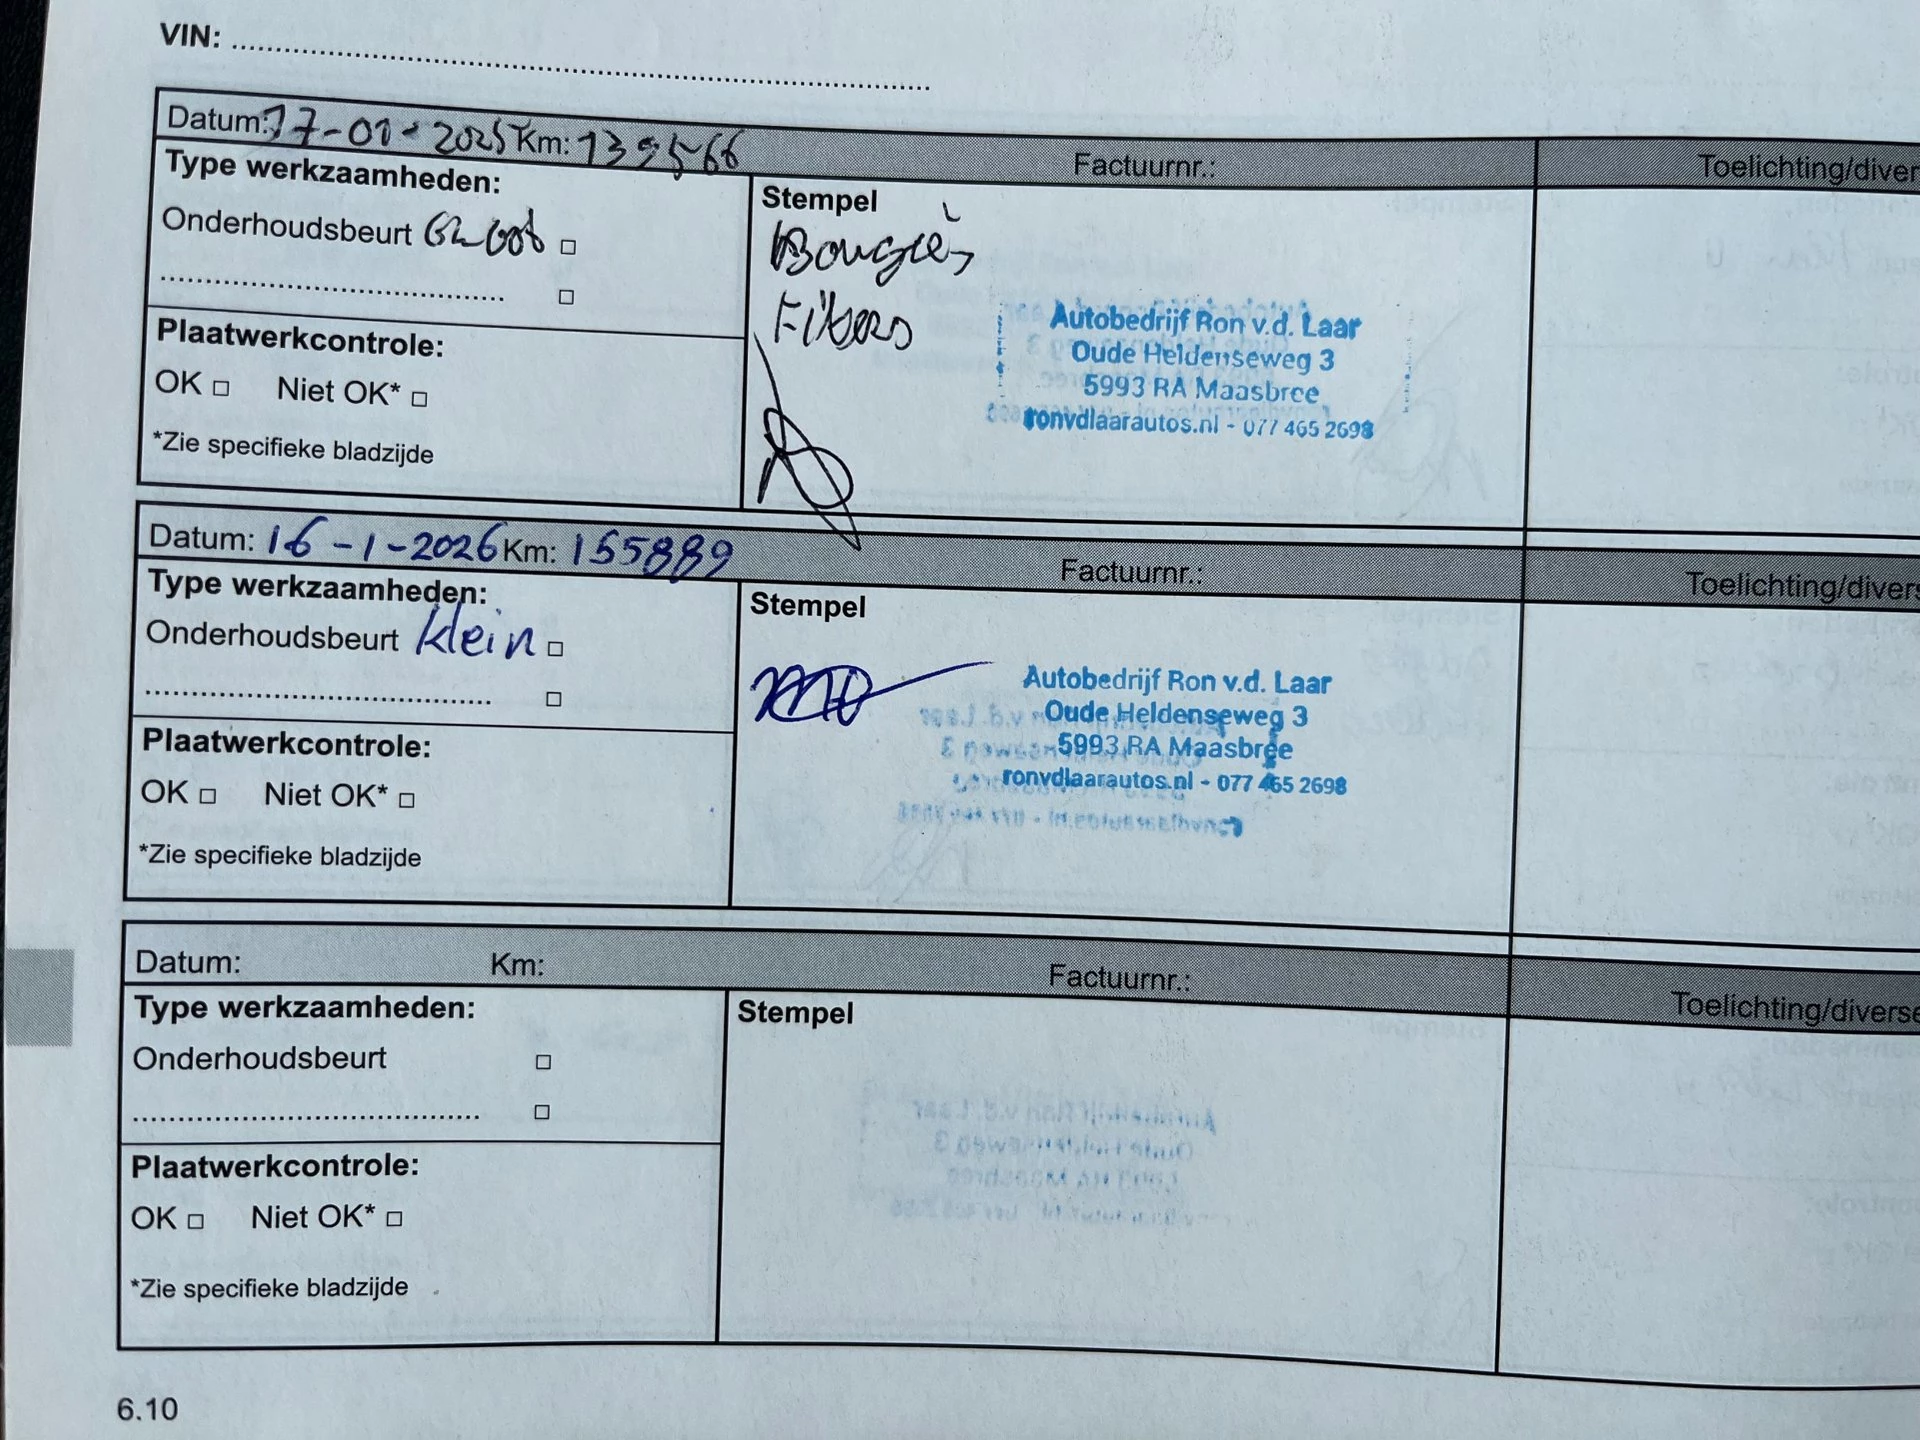 VIN:
Datum: 17-01-2025 Km: 139566 Factuurnr.: Toelichting/diver
Type werkzaamheden:
Stempel
Onderhoudsbeurt Groot
Bougies
Filters
Autobedrijf Ron v.d. Laar
Oude Heldenseweg 3
5993 RA Maasbree
ronvdlaarautos.nl - 077 465 2698
Plaatwerkcontrole:
OK Niet OK*
*Zie specifieke bladzijde
Datum: 16-1-2026 Km: 155889 Factuurnr.: Toelichting/divers
Type werkzaamheden:
Stempel
Onderhoudsbeurt klein
Autobedrijf Ron v.d. Laar
Oude Heldenseweg 3
5993 RA Maasbree
ronvdlaarautos.nl - 077 465 2698
Plaatwerkcontrole:
OK Niet OK*
*Zie specifieke bladzijde
Datum: Km: Factuurnr.: Toelichting/diverse
Type werkzaamheden:
Stempel
Onderhoudsbeurt
Plaatwerkcontrole:
OK Niet OK*
*Zie specifieke bladzijde
6.10